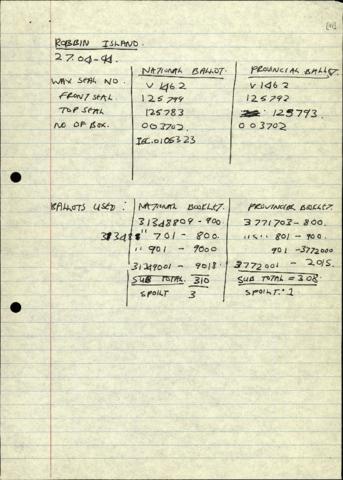 ROBBIN ISLAND.
27.04-94.
NATIONAL BALLOT. PROVINCIAL BALLOT.
WAX SEAL NO. V1462 V1462
FRONT SEAL. 125794 125792
TOP SEAL 125783 125793.
NO OF BOX. 003702. 003702
IEC.0105323
BALLOTS USED: NATIONAL BOOKLET. PROVINCIAL BOOKLET.
31348809-900 3771703-800.
31348 " 701-800. """ 801-900.
" 901-9000 901-3772000
31349001-9018. 3772001-2015.
SUB TOTAL. 310 SUB TOTAL = 308
SPOILT 3 SPOILT. 1